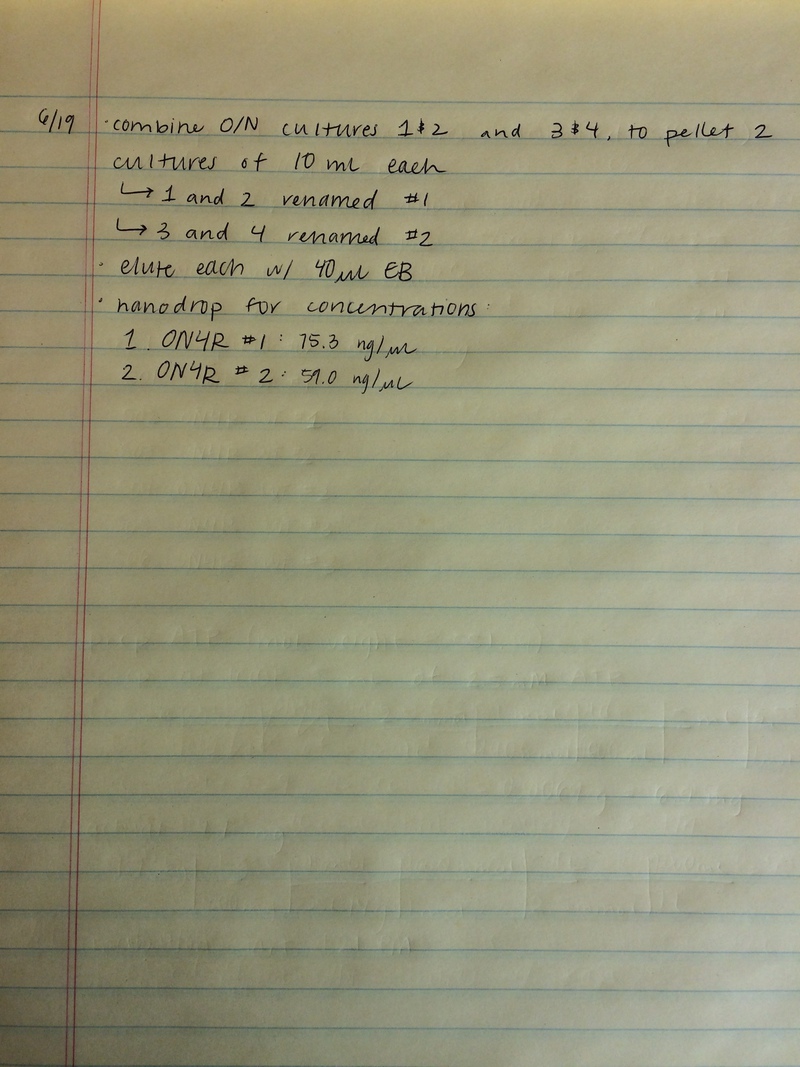 6/19 · combine O/N cultures 1&2 and 3&4, to pellet 2
cultures of 10 mL each
↳ 1 and 2 renamed #1
↳ 3 and 4 renamed #2
· elute each w/ 40µL EB
· nanodrop for concentrations:
1. ON4R #1: 75.3 ng/µL
2. ON4R #2: 59.0 ng/µL